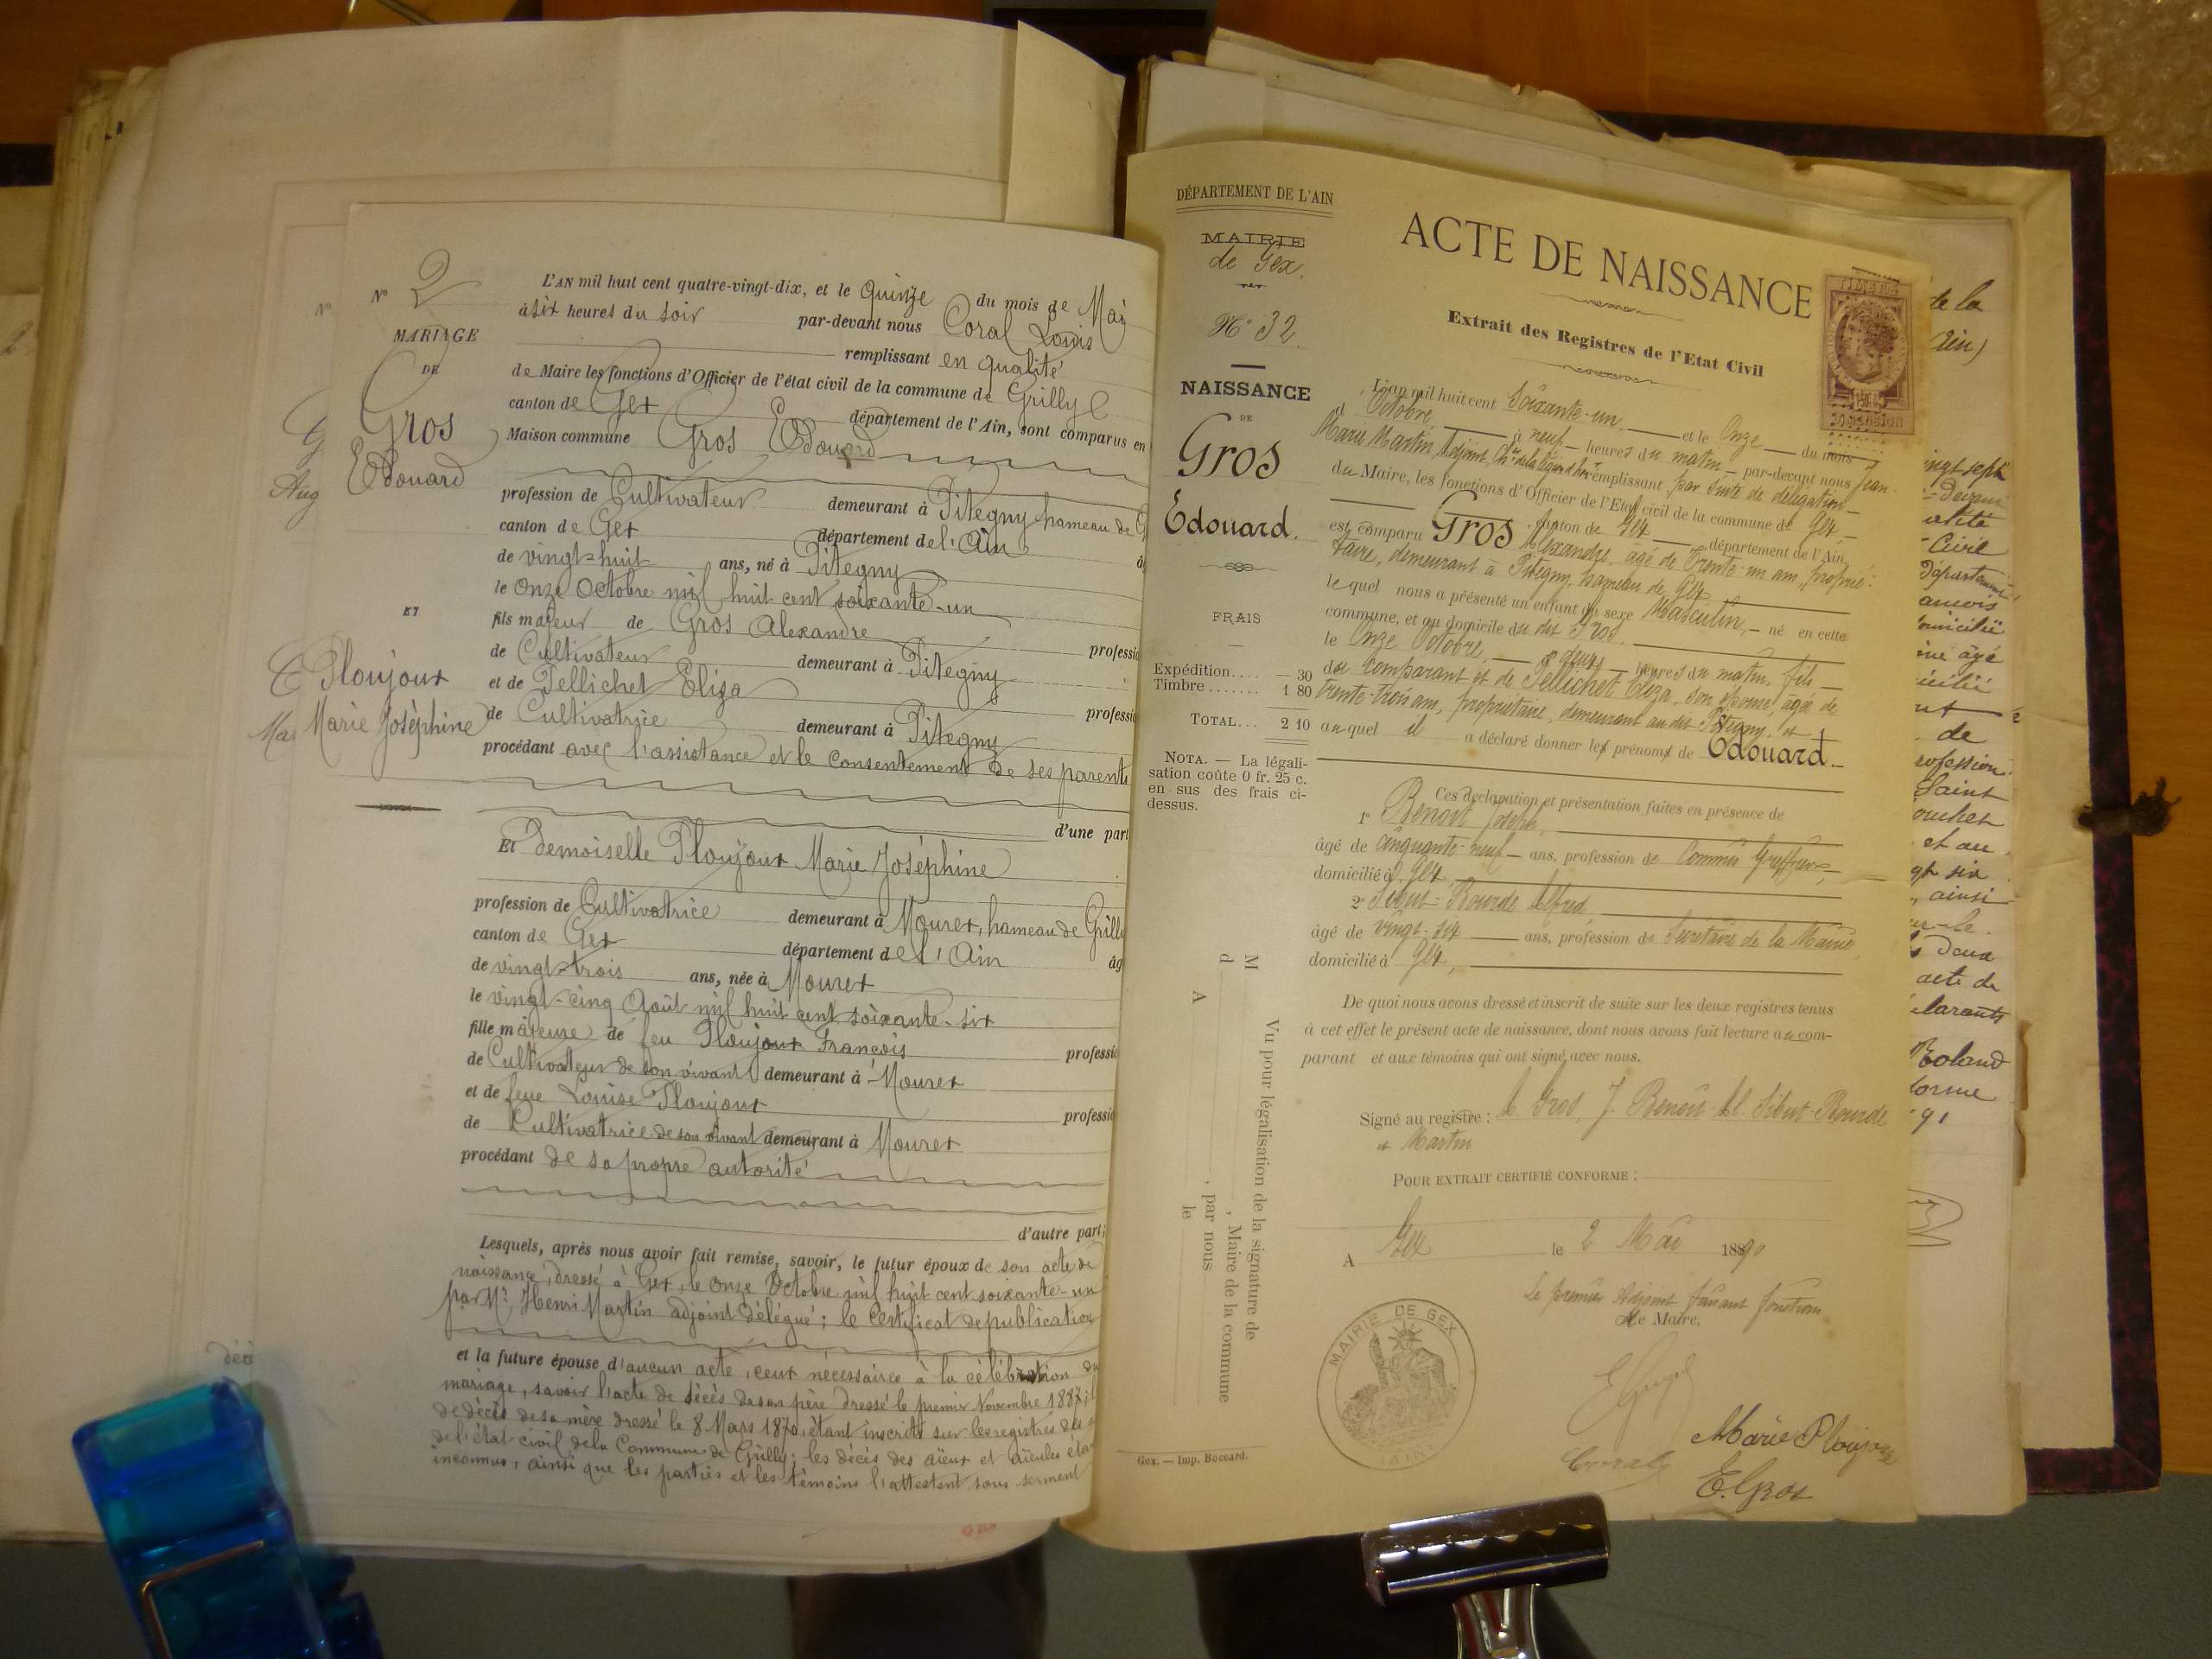 N° 2
MARIAGE
DE
Gros
Edouard
ET
Ploujoux
Marie Joséphine
L'AN mil huit cent quatre-vingt-dix, et le quinze du mois de Mai
à six heures du soir par-devant nous Coral Louis
remplissant en qualité
de Maire les fonctions d'Officier de l'état civil de la commune de Grilly
canton de Gex département de l'Ain, sont comparus en
Maison commune Gros Edouard
profession de Cultivateur demeurant à Pitegny hameau de G
canton de Gex département de l'Ain
de vingt-huit ans, né à Pitegny
le onze Octobre mil huit cent soixante-un
fils majeur de Gros Alexandre
professio
de Cultivateur demeurant à Pitegny
et de Pellichet Eliza
professio
de Cultivatrice demeurant à Pitegny
procédant avec l'assistance et le consentement de ses parents
d'une part
Et Demoiselle Ploujoux Marie Joséphine
profession de Cultivatrice demeurant à Mourex, hameau de Grilly
canton de Gex département de l'Ain âg
de vingt-trois ans, née à Mourex
le vingt-cinq Août mil huit cent soixante-six
fille majeure de feu Ploujoux François
professio
de Cultivateur de son vivant demeurant à Mourex
et de feue Louise Ploujoux
professio
de Cultivatrice de son vivant demeurant à Mourex
procédant de sa propre autorité
d'autre part;
Lesquels, après nous avoir fait remise, savoir, le futur époux de son acte de
naissance, dressé à Gex, le onze Octobre mil huit cent soixante-un
par Mr. Henri Martin adjoint délégué; le certificat de publication
et la future épouse d'aucun acte, ceux nécessaires à la célébration du
mariage, savoir l'acte de décès de son père dressé le premier Novembre 1887;
de décès de sa mère dressé le 8 Mars 1870, étant inscrits sur les registres
de l'état civil de la Commune de Grilly; les décès des aïeux et aïeules étant
inconnus, ainsi que les parties et les témoins l'attestent sous serment
DÉPARTEMENT DE L'AIN
MAIRIE
de Gex.
N° 32
NAISSANCE
DE
Gros
Edouard.
FRAIS
Expédition.... — 30
Timbre....... 1 80
TOTAL... 2 10
NOTA. — La légali-
sation coûte 0 fr. 25 c.
en sus des frais ci-
dessus.
Vu pour légalisation de la signature de
M
d , Maire de la commune
A , par nous
le
Gex. — Imp. Boccard.
ACTE DE NAISSANCE
Extrait des Registres de l'Etat Civil
L'an mil huit cent Soixante-un et le Onze du mois
d'Octobre à neuf heures du matin par-devant nous Jean-
Marie Martin, Adjoint, remplissant par suite de délégation
du Maire, les fonctions d'Officier de l'Etat civil de la commune de Gex,
canton de Gex département de l'Ain
est comparu Gros Alexandre, âgé de Trente-un ans, proprié-
taire, demeurant à Pitegny, hameau de Gex
lequel nous a présenté un enfant du sexe Masculin, né en cette
commune, et au domicile du dit Gros.
le Onze Octobre, à deux heures du matin, fils
du comparant et de Pellichet Eliza, son épouse, âgée de
trente-trois ans, propriétaire, demeurant au dit Pitegny, et
auquel il a déclaré donner les prénoms de Edouard.
Ces déclaration et présentation faites en présence de
1° Benoit Joseph,
âgé de Cinquante-neuf ans, profession de Commis Greffier,
domicilié à Gex,
2° Sibut-Bourde Alfred,
âgé de vingt-six ans, profession de Secrétaire de la Mairie,
domicilié à Gex,
De quoi nous avons dressé et inscrit de suite sur les deux registres tenus
à cet effet le présent acte de naissance, dont nous avons fait lecture au com-
parant et aux témoins qui ont signé avec nous.
Signé au registre : A. Gros, J. Benoit, Al. Sibut-Bourde
et Martin
POUR EXTRAIT CERTIFIÉ CONFORME :
A Gex le 2 Mai 1890
Le premier Adjoint faisant fonctions
de Maire,
MAIRIE DE GEX
(AIN)
Marie Ploujoux
Coral
E. Gros
de la
(Ain)
vingt sept
Civil
Département
domicilié
de
rofession
Saint
et au
six
ainsi
deux
acte de
91